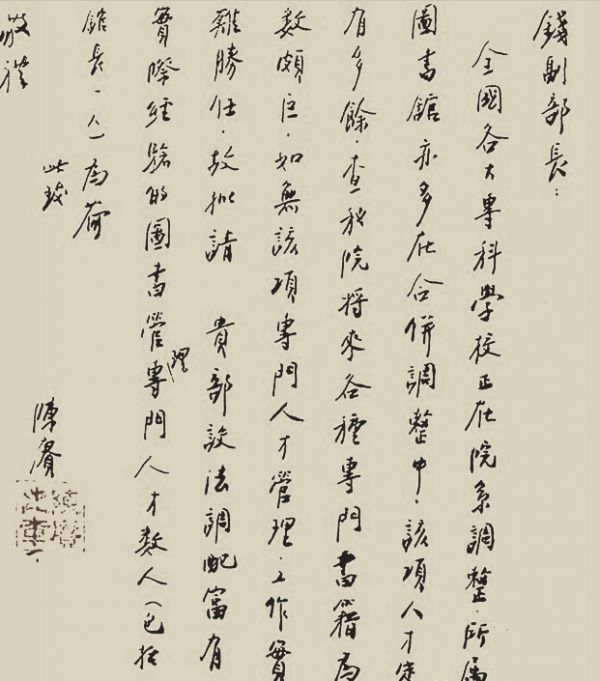 錢副部長：
全國各大專科學校正在院系調整·所屬
圖書館亦多在合併調整中·該項人才定
有多餘·查我院將來各種專門書籍為
数頗巨·如無該項專門人才管理·工作實
難勝任·故拟請 貴部設法調配富有
實際經驗的圖書管理專門人才数人（包括
舘長一人）為荷
此致
敬禮
陳賡